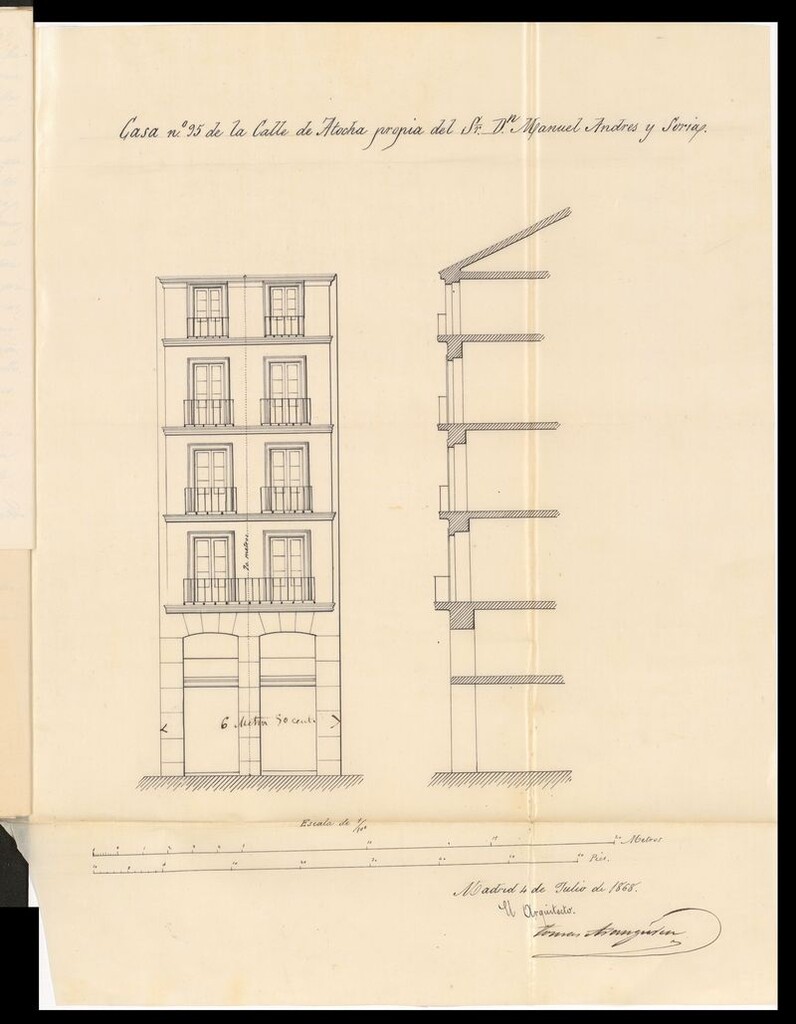 Casa n.º 95 de la Calle de Atocha propia del Sr. Dⁿ Manuel Andres y Soria.
20 metros
6 Metros 50 cent.
Escala de 1/100
Metros
Pies.
Madrid 4 de Julio de 1868.
El Arquitecto.
Tomas Aranguren